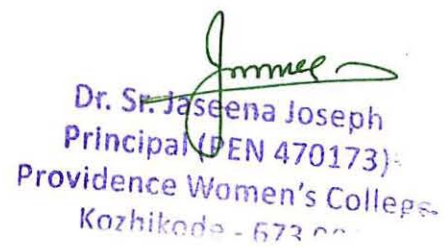 Dr. Sr. Jaseena Joseph
Principal (PEN 470173)
Providence Women's College
Kozhikode - 673